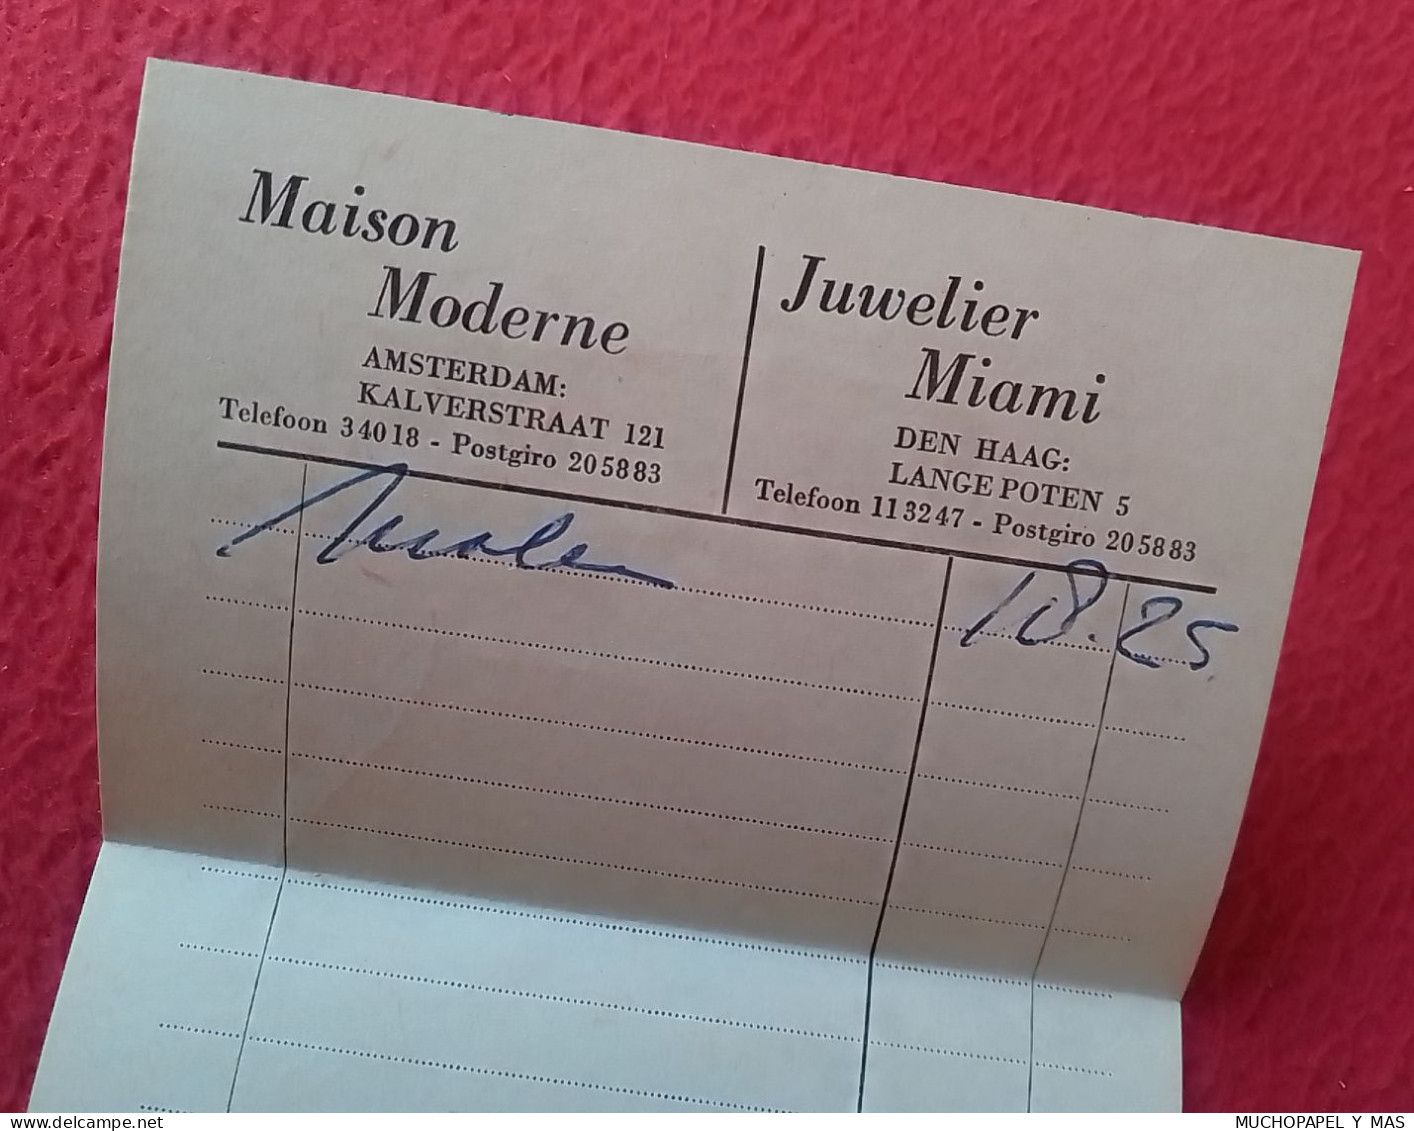 Maison
Moderne
AMSTERDAM:
KALVERSTRAAT 121
Telefoon 34018 - Postgiro 205883
Juwelier
Miami
DEN HAAG:
LANGE POTEN 5
Telefoon 113247 - Postgiro 205883
18.25
MUCHOPAPEL Y MAS
delcampe.net